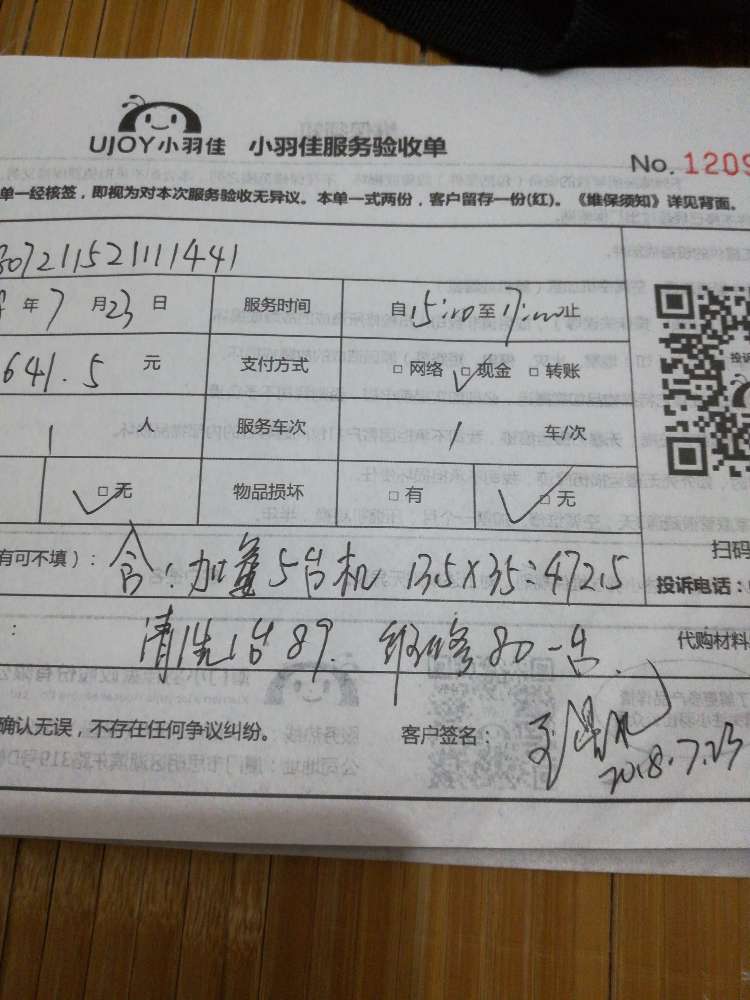 UJOY小羽佳 小羽佳服务验收单
No. 1209
单一经核签，即视为对本次服务验收无异议。本单一式两份，客户留存一份(红)。《维保须知》详见背面。
807211521111441
年 7 月 23 日 服务时间 自 15:10 至 17:00 止
641.5 元 支付方式 □ 网络 □ 现金 □ 转账
1 人 服务车次 1 车/次
□ 无 物品损坏 □ 有 □ 无
有可不填）： 含：加氟5台机 13.5×35=472.5
扫码
投诉电话：
： 清洗1台89. 维修80一台.
代购材料
确认无误，不存在任何争议纠纷。 客户签名：
2018.7.23